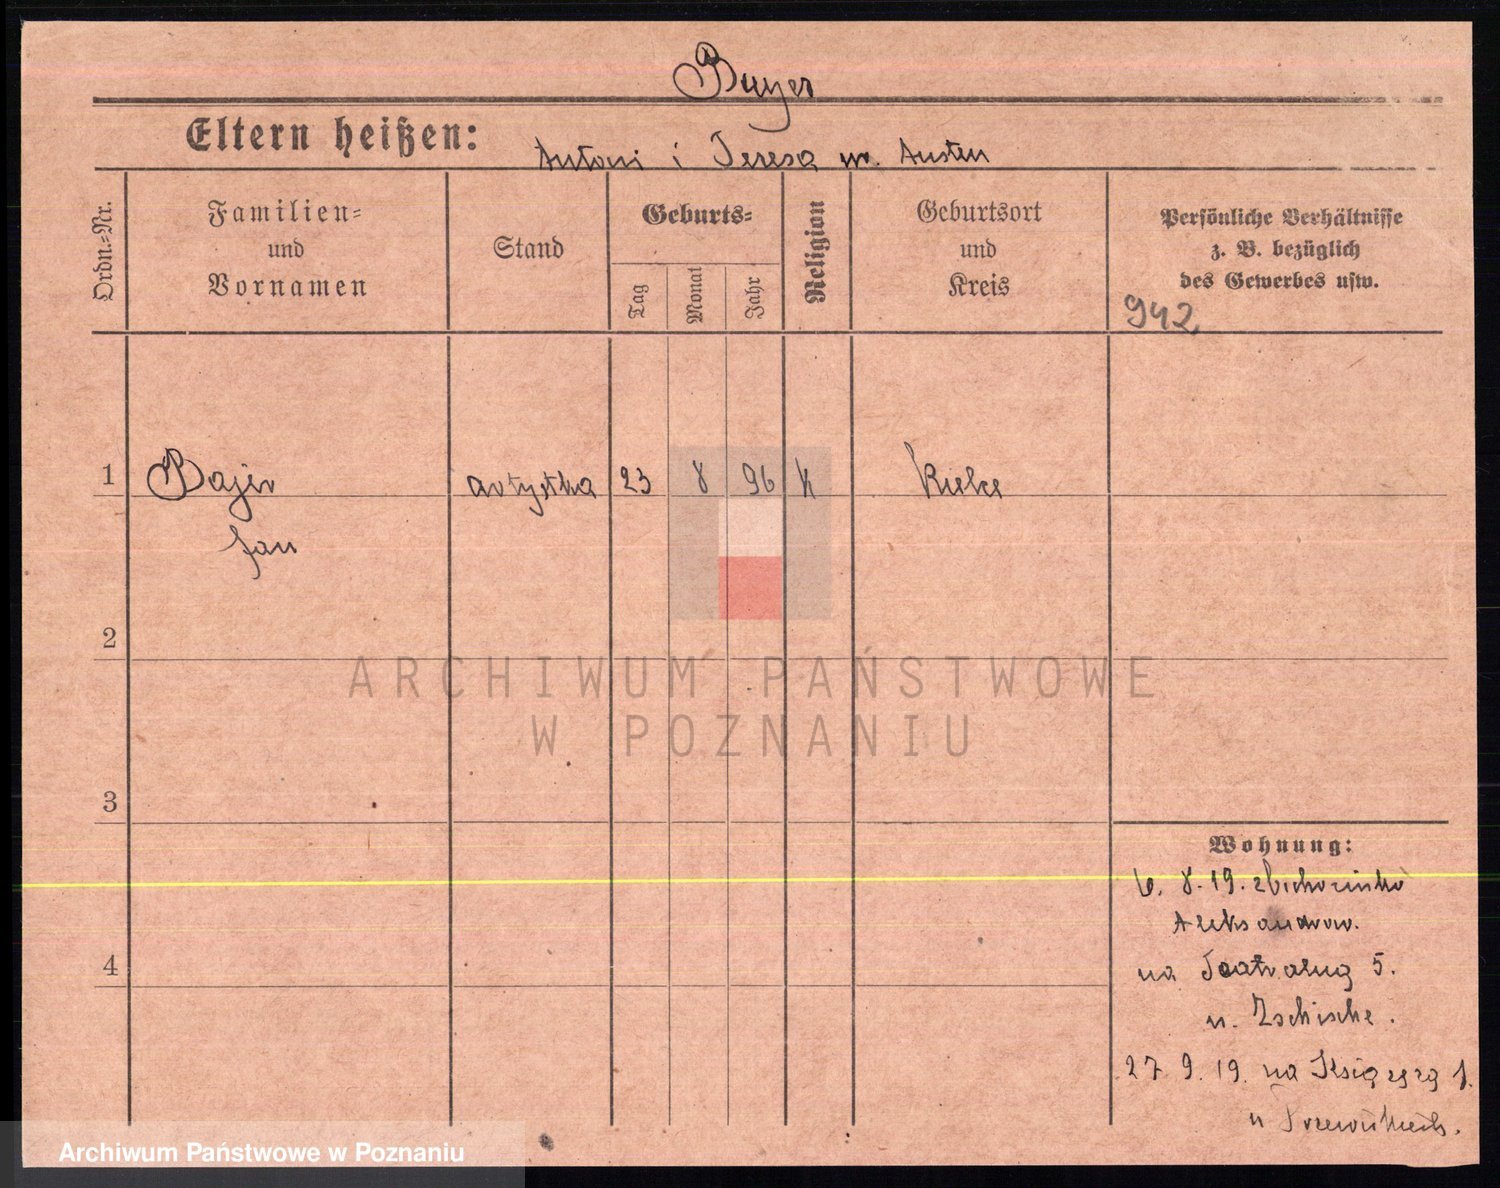 Bayer
Eltern heißen:
Antoni i Teresa ur. Austen
Ordn.-Nr.
Familien-
und
Vornamen
Stand
Geburts-
Tag
Monat
Jahr
Religion
Geburtsort
und
Kreis
Persönliche Verhältnisse
z. B. bezüglich
des Gewerbes usw.
942
1
Bajer
artystka
23
8
96
K
Kielce
Jan
2
ARCHIWUM PAŃSTWOWE
W POZNANIU
3
Wohnung:
6. 8. 19. z
Aleksandrow.
4
na Teatralną 5.
u. Zschische.
27 9. 19. na Księżą 1.
u
Archiwum Państwowe w Poznaniu